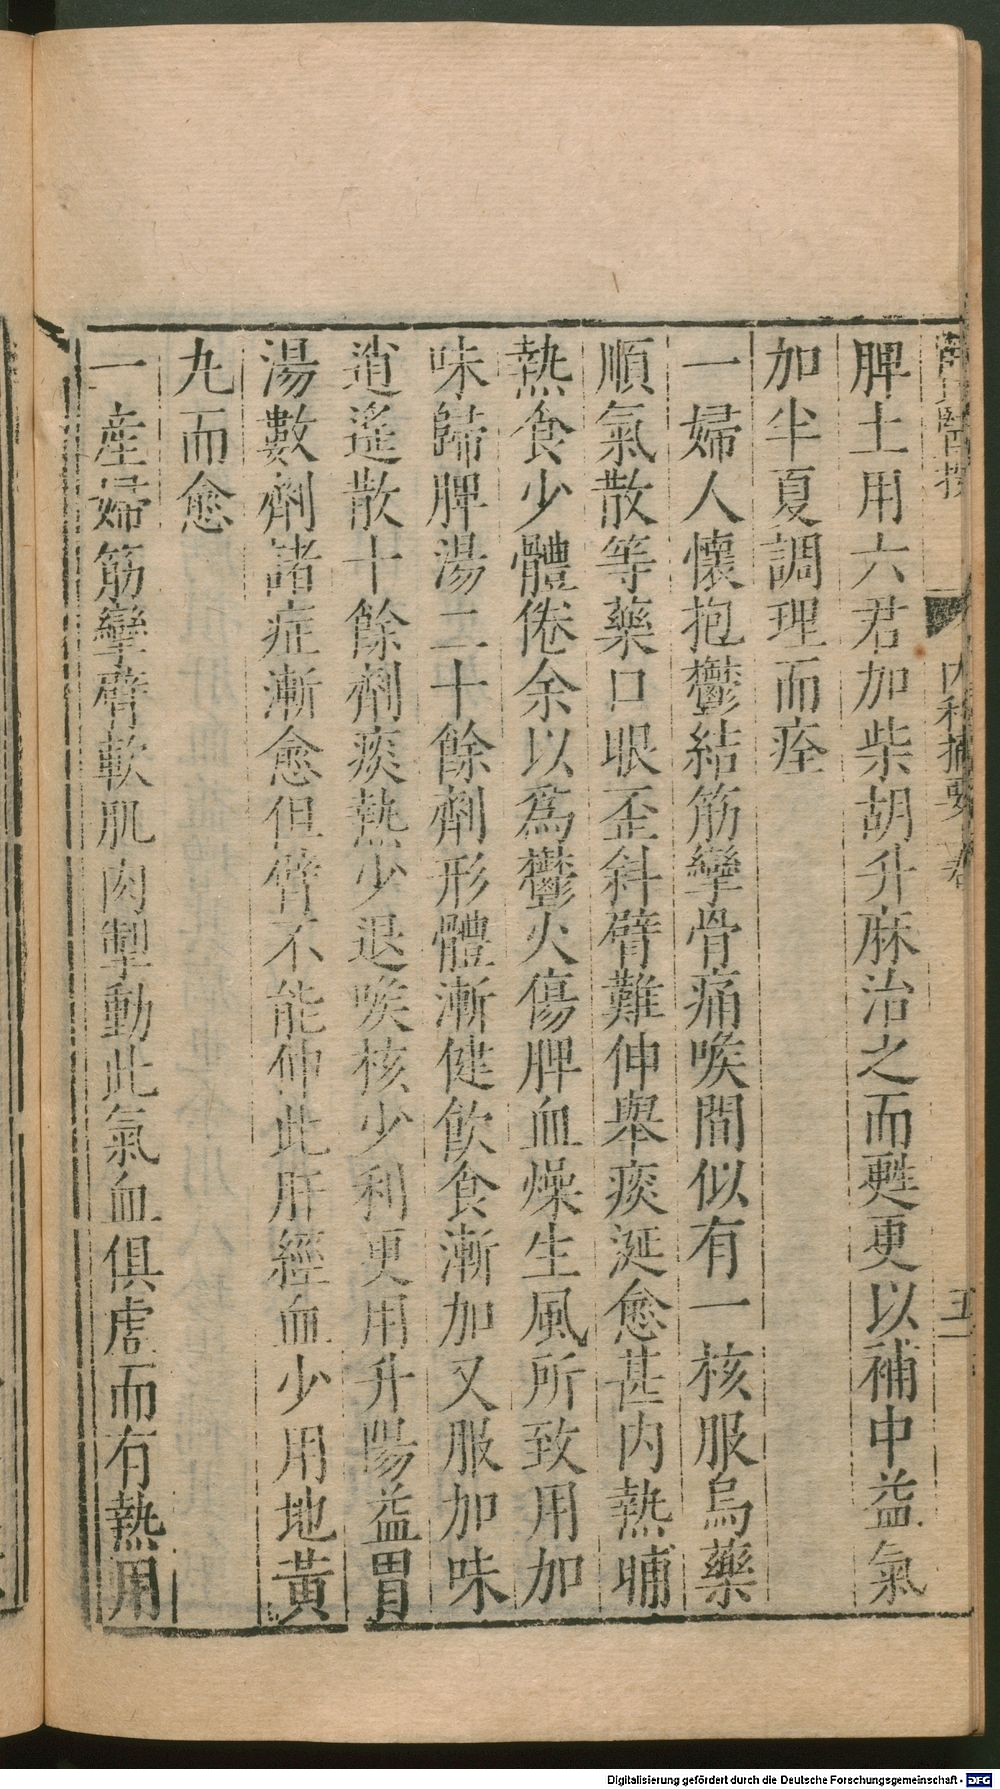 內科摘要
脾土用六君加柴胡升麻治之而甦更以補中益氣
加半夏調理而痊
一婦人懷抱鬱結筋攣骨痛喉間似有一核服烏藥
順氣散等藥口眼歪斜臂難伸舉痰涎愈甚内熱晡
熱食少體倦余以爲鬱火傷脾血燥生風所致用加
味歸脾湯二十餘劑形體漸健飲食漸加又服加味
逍遙散十餘劑痰熱少退喉核少利更用升陽益胃
湯數劑諸症漸愈但臂不能伸此肝經血少用地黃
九而愈
一産婦筋攣臂軟肌肉掣動此氣血俱虛而有熱用
Digitalisierung gefördert durch die Deutsche Forschungsgemeinschaft - DFG